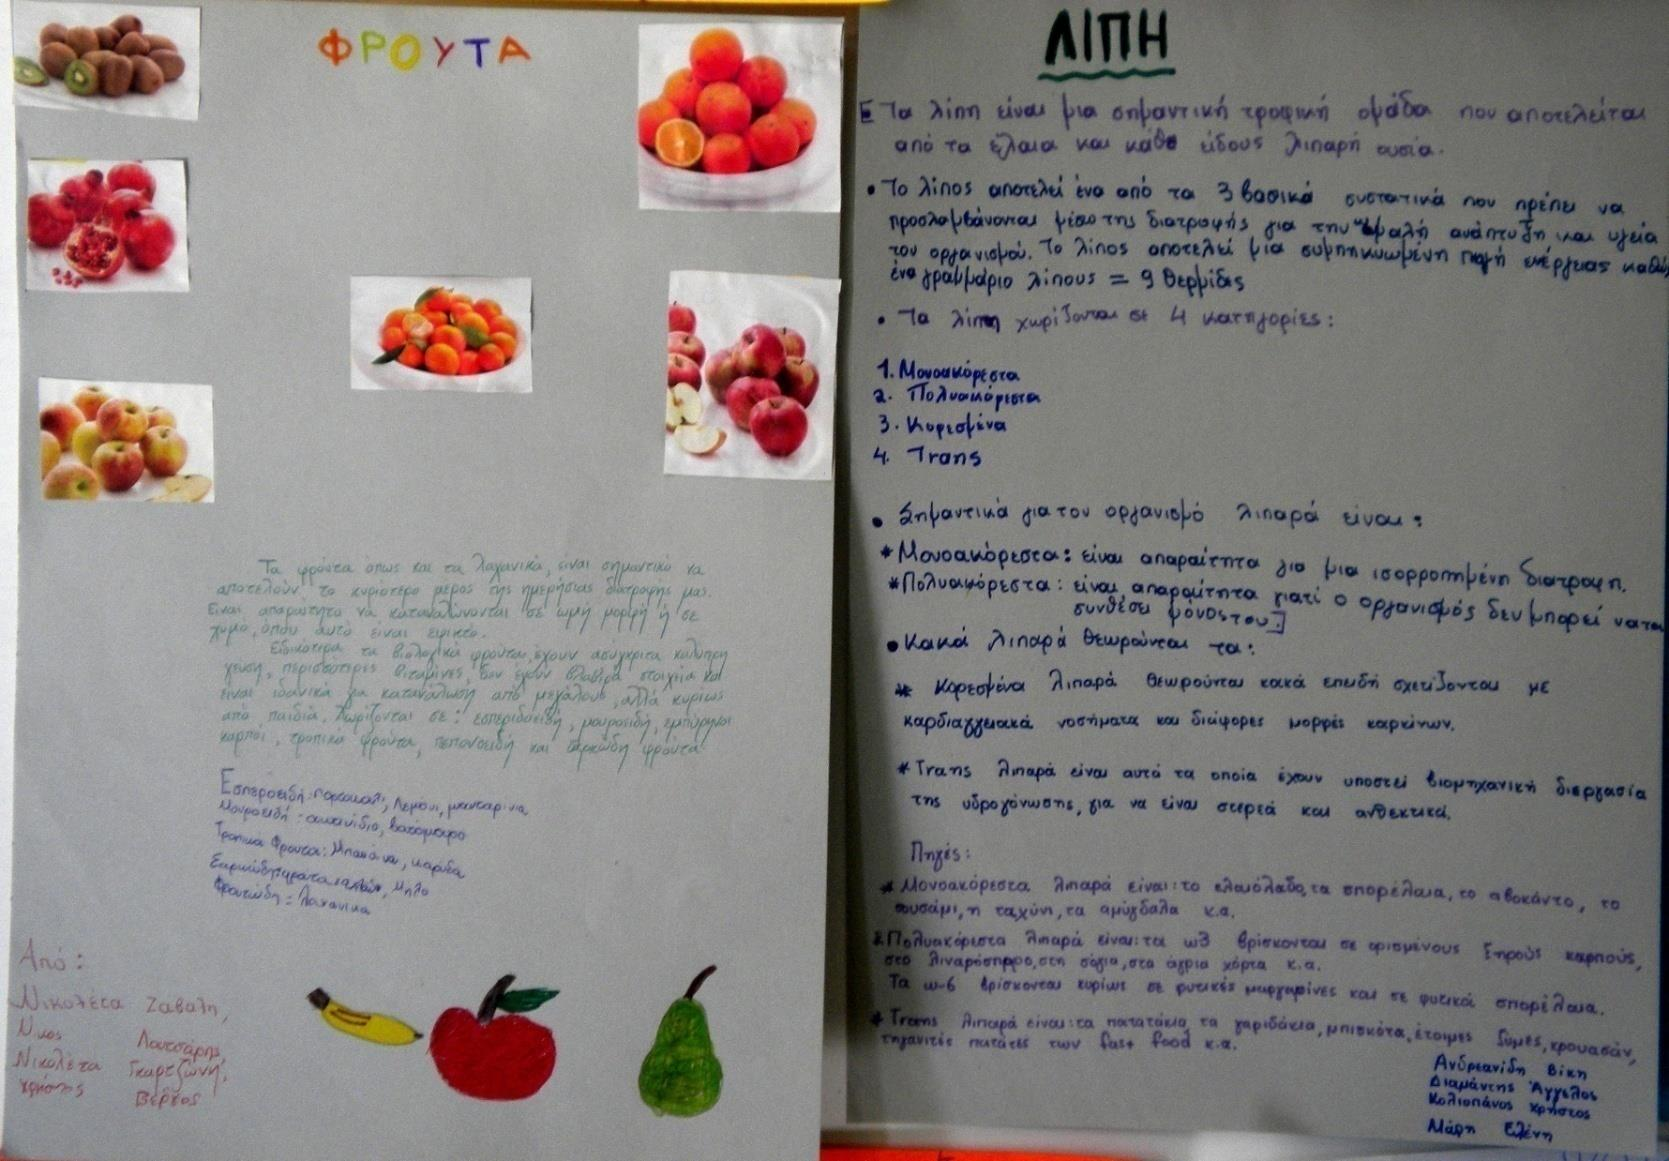 ΦΡΟΥΤΑ
Τα φρούτα όπως και τα λαχανικά, είναι σημαντικό να
αποτελούν το κυριότερο μέρος της ημερήσιας διατροφής μας.
Είναι απαραίτητο να καταναλώνονται σε ωμή μορφή ή σε
χυμό, όπου αυτό είναι εφικτό.
Ειδικότερα τα βιολογικά φρούτα, έχουν ασύγκριτα καλύτερη
γεύση, περισσότερες βιταμίνες, δεν έχουν βλαβερά στοιχεία και
είναι ιδανικά για κατανάλωση από μεγάλους, αλλά κυρίως
από παιδιά. Χωρίζονται σε: εσπεριδοειδή, μουροειδή, εμπύρηνοι
καρποί, τροπικά φρούτα, πεπονοειδή και σαρκώδη φρούτα
Εσπεροειδή: πορτοκαλι, λεμόνι, μανταρινια
Μουροειδή: βατόμουρο
Τροπικα Φρουτα: Μπανάνα, καρύδα
Μήλο
Φρουτώδη: Λαχανικα
Από:
Νικολέτα Ζαβαλη,
Νικος Λουτσάρης,
Νικολέτα Γκαρτζώνη,
Χρήστος Βέρχος
ΛΙΠΗ
Τα λίπη είναι μια σημαντική τροφική ομάδα που αποτελείται
από τα έλαια και κάθε είδους λιπαρή ουσία.
• Το λίπος αποτελεί ένα από τα 3 βασικά συστατικά που πρέπει να
προσλαμβάνονται μέσο της διατροφής για την ομαλή ανάπτυξη και υγεία
του οργανισμού. Το λίπος αποτελεί μια συμπηκνωμένη πηγή ενέργειας καθώς
ένα γραμμάριο λίπους = 9 θερμίδες
• Τα λίπη χωρίζονται σε 4 κατηγορίες:
1. Μονοακόρεστα
2. Πολυακόρεστα
3. Κορεσμένα
4. Trans
• Σημαντικά για τον οργανισμό λιπαρά είναι:
* Μονοακόρεστα: είναι απαραίτητα για μια ισορροπημένη διατροφη.
* Πολυακόρεστα: είναι απαραίτητα γιατί ο οργανισμός δεν μπορεί να τα
συνθέσει μόνος του.]
• Κακά λιπαρά θεωρούνται τα:
* Κορεσμένα λιπαρά θεωρούνται κακά επειδή σχετίζονται με
καρδιαγγειακά νοσήματα και διάφορες μορφές καρκίνων.
* Trans λιπαρά είναι αυτά τα οποία έχουν υποστεί βιομηχανική διεργασία
της υδρογόνωσης, για να είναι στερεά και ανθεκτικά.
Πηγές:
* Μονοακόρεστα λιπαρά είναι: το ελαιόλαδο, τα σπορέλαια, το αβοκάντο, το
σουσάμι, η ταχίνι, τα αμύγδαλα κ.α.
* Πολυακόρεστα λιπαρά είναι: τα ω3 βρίσκονται σε ορισμένους ξηρούς καρπούς,
στο λιναρόσπορο, στη σόγια, στα άγρια χόρτα κ.α.
Τα ω-6 βρίσκονται κυρίως σε φυτικές μαργαρίνες και σε φυτικά σπορέλαια.
* Trans λιπαρά είναι: τα πατατάκια, τα γαριδάκια, μπισκότα, έτοιμες ζύμες, κρουασάν,
τηγανιτές πατάτες των fast food κ.α.
Ανδρεανίδη Βίκη
Διαμάντης Άγγελος
Κολιοπάνος Χρήστος
Μάρη Ελένη